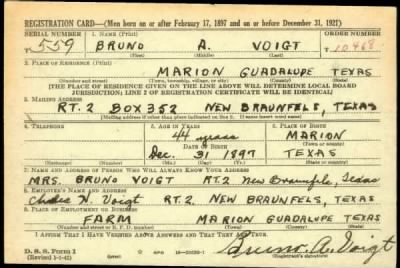 REGISTRATION CARD—(Men born on or after February 17, 1897 and on or before December 31, 1921)
SERIAL NUMBER 1. NAME (Print) ORDER NUMBER
T 559 BRUNO A. VOIGT T 10468
(First) (Middle) (Last)
2. PLACE OF RESIDENCE (Print)
MARION GUADALUPE TEXAS
(Number and street) (Town, township, village, or city) (County) (State)
[THE PLACE OF RESIDENCE GIVEN ON THE LINE ABOVE WILL DETERMINE LOCAL BOARD
JURISDICTION; LINE 2 OF REGISTRATION CERTIFICATE WILL BE IDENTICAL]
3. MAILING ADDRESS
RT. 2 BOX 352 NEW BRAUNFELS, TEXAS
[Mailing address if other than place indicated on line 2. If same insert word same]
4. TELEPHONE 5. AGE IN YEARS 6. PLACE OF BIRTH
44 years MARION
DATE OF BIRTH (Town or county)
Dec. 31 1897 TEXAS
(Exchange) (Number) (Mo.) (Day) (Yr.) (State or country)
7. NAME AND ADDRESS OF PERSON WHO WILL ALWAYS KNOW YOUR ADDRESS
MRS. BRUNO VOIGT RT.2 New Braunfels, Texas
8. EMPLOYER'S NAME AND ADDRESS
W. Voigt RT.2, NEW BRAUNFELS, TEXAS
9. PLACE OF EMPLOYMENT OR BUSINESS
FARM MARION GUADALUPE TEXAS
(Number and street or R. F. D. number) (Town) (County) (State)
I AFFIRM THAT I HAVE VERIFIED ABOVE ANSWERS AND THAT THEY ARE TRUE.
D. S. S. Form 1
(Revised 1-1-42) GPO Bruno A. Voigt
(Registrant's signature)